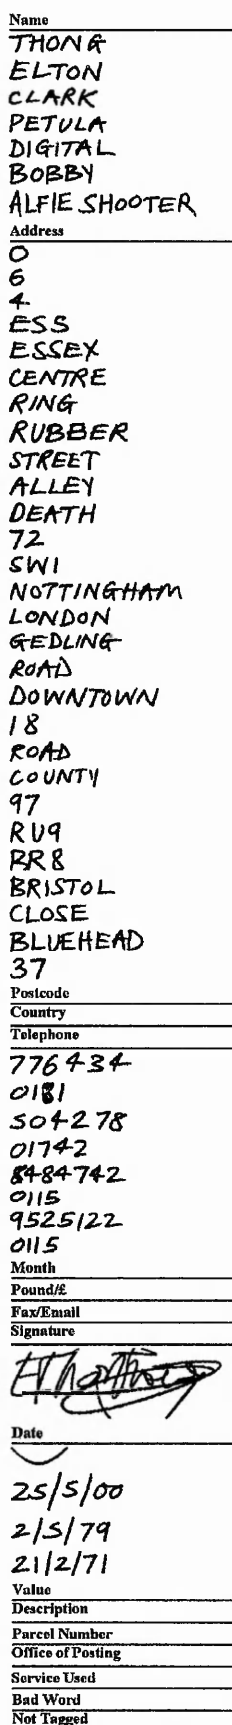 Name
THONG
ELTON
CLARK
PETULA
DIGITAL
BOBBY
ALFIE SHOOTER
Address
0
6
4
ESS
ESSEX
CENTRE
RING
RUBBER
STREET
ALLEY
DEATH
72
SW1
NOTTINGHAM
LONDON
GEDLING
ROAD
DOWNTOWN
18
ROAD
COUNTY
97
RU9
RR8
BRISTOL
CLOSE
BLUEHEAD
37
Postcode
Country
Telephone
776434
0181
504278
01742
8484742
0115
9525122
0115
Month
Pound/£
Fax/Email
Signature
Date
25/5/00
2/5/79
21/2/71
Value
Description
Parcel Number
Office of Posting
Service Used
Bad Word
Not Tagged